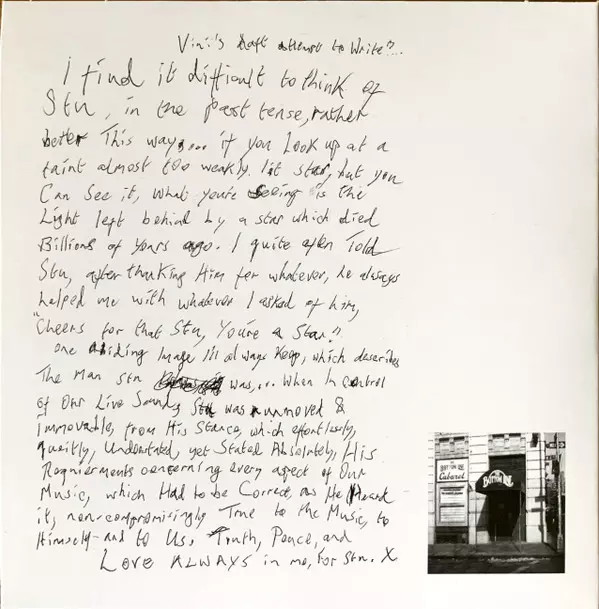 Vini's daft attempt to Write?...
I find it difficult to think of
Stu, in the past tense, rather
better This way.... if you Look up at a
faint almost too weakly lit star, but you
Can See it, What you're Seeing is the
Light left behind by a star which died
Billions of Years ago. I quite often Told
Stu, after thanking Him for whatever, he always
helped me with whatever I asked of him,
"Cheers for that Stu, You're a Star!"
One abiding Image I'll always Keep, which describes
The Man Stu was,... When In control
of Our Live Sound, Stu was unmoved &
immovable, from His Stance, which effortlessly,
quietly, Understated, yet Stated Absolutely, His
Requierments concerning every aspect of Our
Music, which Had to be Correct, as He Heard
it, non-compromisingly True to the Music, to
Himself- and to Us, Truth, Peace, and
Love ALWAYS in me, for Stu. X
BOTTOM LINE
Cabaret
BOTTOM LINE